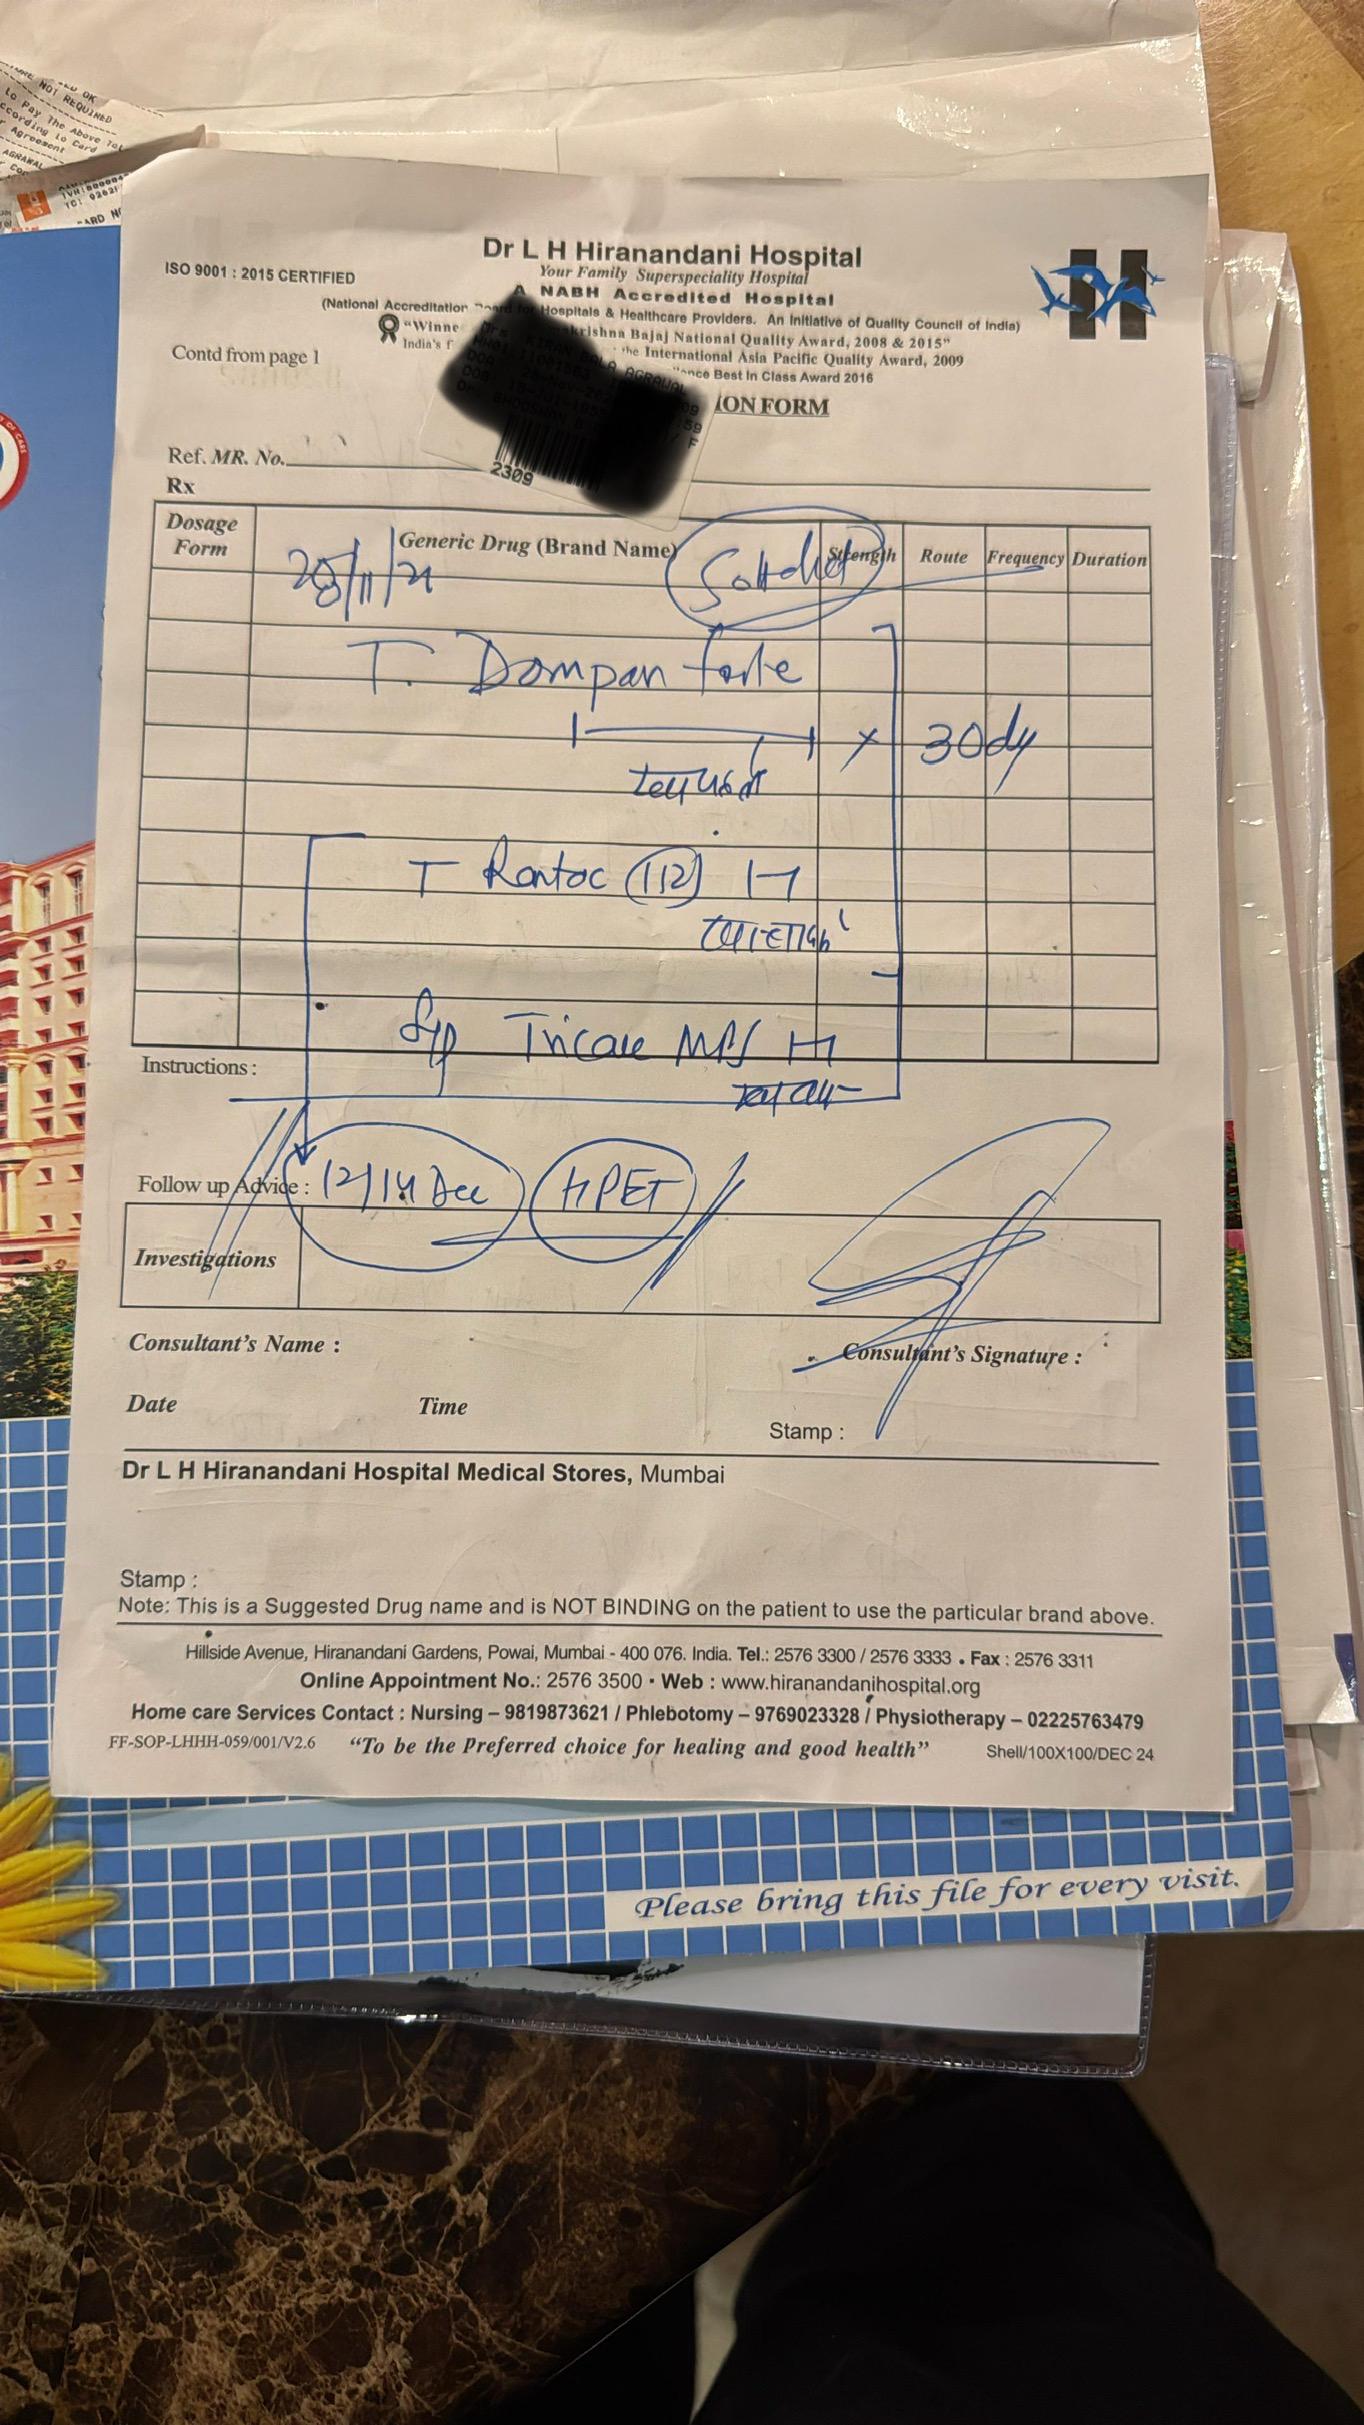 NOT REQUIRED
to Pay The Above
According to Card
Agreement
AGRAWAL
ISO 9001 : 2015 CERTIFIED
Dr L H Hiranandani Hospital
Your Family Superspeciality Hospital
A NABH Accredited Hospital
(National Accreditation for Hospitals & Healthcare Providers. An Initiative of Quality Council of India)
"Winne krishna Bajaj National Quality Award, 2008 & 2015"
India's f the International Asia Pacific Quality Award, 2009
Best In Class Award 2016
Contd from page 1
ION FORM
2309
Ref. MR. No.
Rx
Dosage Form Generic Drug (Brand Name) Strength Route Frequency Duration
T. Dompan forte
x 30dy
T Rantac (112)
Syp Tricaine MPS
Instructions :
Follow up Advice : 12/14 Dec HPET
Investigations
Consultant's Name :
Consultant's Signature :
Date Time
Stamp :
Dr L H Hiranandani Hospital Medical Stores, Mumbai
Stamp :
Note: This is a Suggested Drug name and is NOT BINDING on the patient to use the particular brand above.
Hillside Avenue, Hiranandani Gardens, Powai, Mumbai - 400 076. India. Tel.: 2576 3300 / 2576 3333 • Fax : 2576 3311
Online Appointment No.: 2576 3500 • Web : www.hiranandanihospital.org
Home care Services Contact : Nursing – 9819873621 / Phlebotomy – 9769023328 / Physiotherapy – 02225763479
FF-SOP-LHHH-059/001/V2.6 "To be the Preferred choice for healing and good health" Shell/100X100/DEC 24
Please bring this file for every visit.